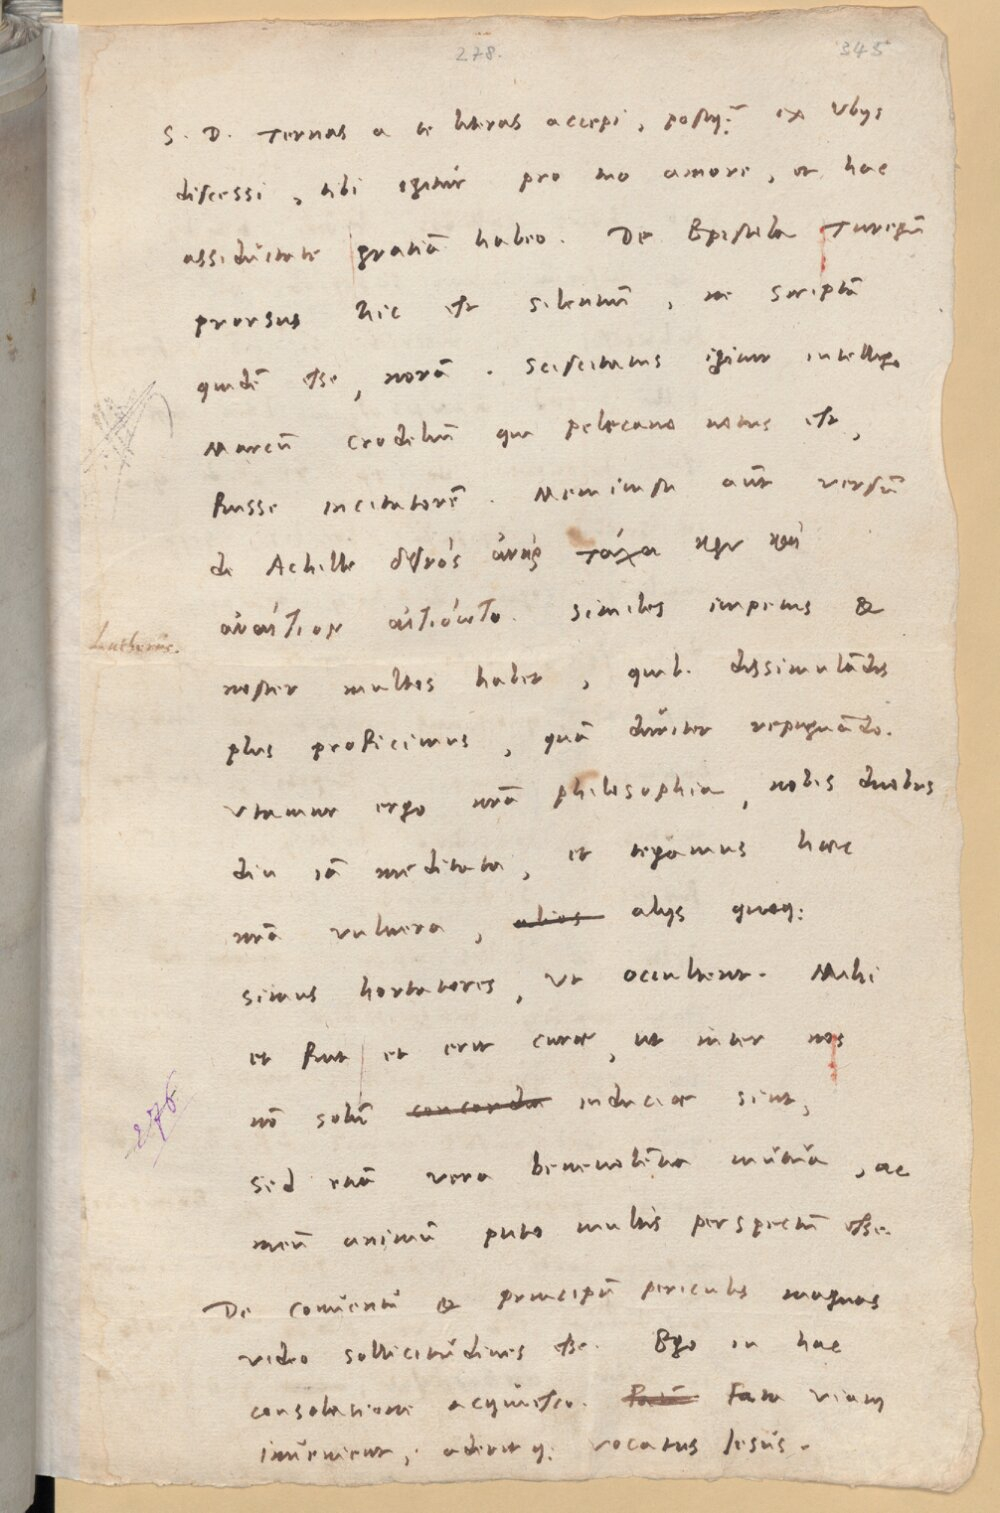 278.
345
S. D. Ternas a te literas accepi, postq̃: ex Vbijs
discessi, tibi igitur pro tuo amore, et hac
assiduitate gratiã habeo. De Epistola Turegũ
prorsus hic est silentiũ, ne scriptã
quidẽ esse, norã. Sciscitatus igitur intelligo
Marcũ Crodeliũ qui pelecano notus est,
fuisse incitatorẽ. Meministi aũt versũ
de Achille δεινὸς ἀνὴρ τάχα κεν καὶ
ἀναίτιον αἰτιόῳτο. Similes impetus &
Lutherus.
noster multos habet, quib. dissimulãdis
plus proficimus, quã duriter repugnãdo.
Vtamur ergo nrã philosophia, nobis duobus
diu iã meditata, et tegamus haec
nrã vulnera, alios alijs quoq:
simus hortatores, vt occultent. Mihi
et fuit et erit curae, ut inter nos
nõ solũ concordia induciae sint,
sed etiã vera benevolẽtia mutua, ac
meũ animũ puto multis perspectũ esse.
276
De conventu & principũ periculis magnas
video sollicitudines esse. Ego in hac
consolatione acquiesco. Fatũ Fata viam
invenient, aderit q: vocatus Iesus.